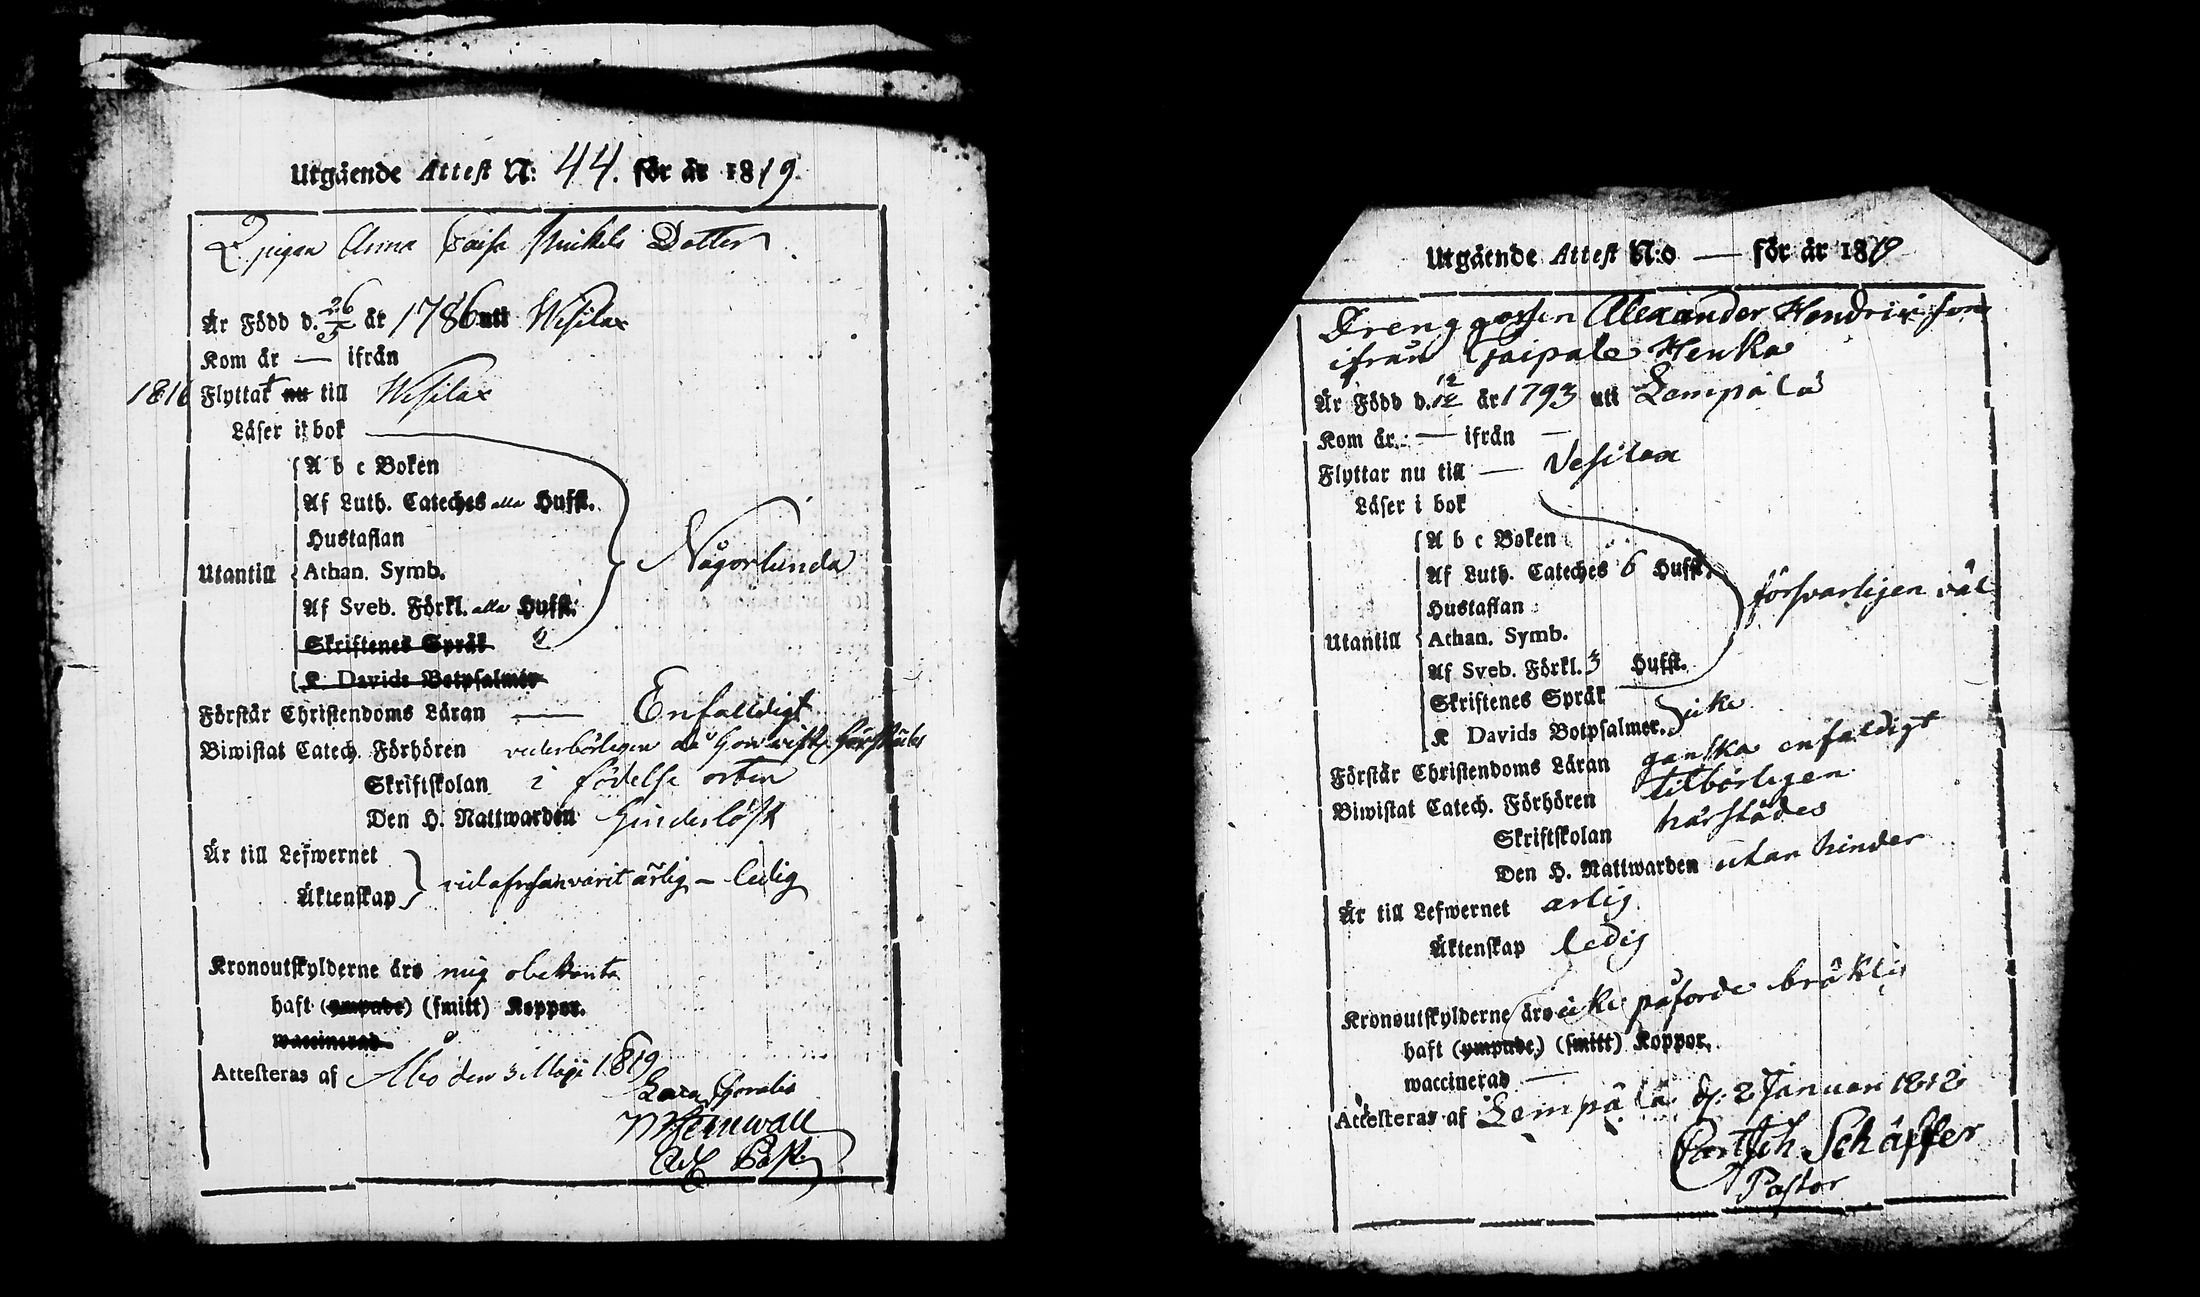 Utgående Attest N: 44. för år 1819.
Qpigan Anna Caisa Mickels Dotter
Är Född d. 26/5 år 1786 uti Wesilax
Kom år — ifrån
1816 Flyttat nu till Wesilax
Läser i bok
A b c Boken
Af Luth. Cateches alla Hufst.
Hustaflan
Utantill Athan. Symb. Någorlunda
Af Sveb. Förkl. alla Hufst.
Skriftenes Språk
K Davids Botpsalmer
Förstår Christendoms Läran — Enfaldigt
Biwistat Catech. Förhören vederbörligen då hon wist.
Skriftskolan i födelse orten
Den H. Nattwarden hinderlöst
Är till Lefwernet
Äktenskap ärlig - ledig
Kronoutskylderne äro mig obekanta
haft (ympade) (smitt) Koppor.
waccinerad
Attesteras af Åbo den 3 Maji 1819
Past.
Utgående Attest N:o — för år 1819
Drenggossen Alexander Hendrichsson
ifrån Taipale Heuka
Är Född d. 12/12 år 1793 uti Lempälä
Kom år — ifrån —
Flyttar nu till — Vesilax
Läser i bok
A b c Boken
Af Luth. Cateches 6 Hufst.
Hustaflan försvarligen väl
Utantill Athan. Symb.
Af Sveb. Förkl. 3 Hufst.
Skriftenes Språk
K Davids Botpsalmer. icke
Förstår Christendoms Läran ganska enfaldigt
Biwistat Catech. Förhören tilbörligen
Skriftskolan härstädes
Den H. Nattwarden utan hinder
Är till Lefwernet ärlig
Äktenskap ledig
Kronoutskylderne äro icke påforde bräklig
haft (ympade) (smitt) Koppor.
waccinerad —
Attesteras af Lempälä d: 2 Januari 1812
Schäffer
Pastor